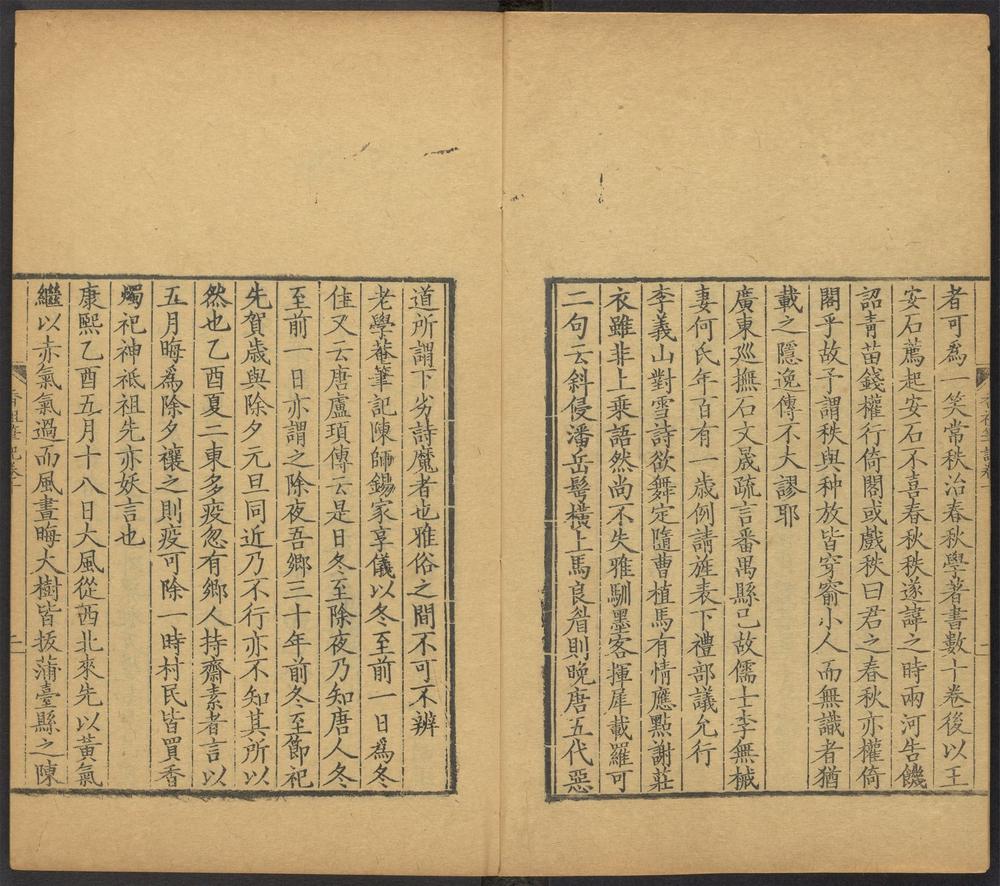 者可爲一笑常秩治春秋學著書數十卷後以王
安石薦起安石不喜春秋秩遂諱之時兩河告饑
詔青苗錢權行倚閣或戲秩曰君之春秋亦權倚
閣乎故予謂秩與种放皆穿窬小人而無識者猶
載之隱逸傳不大謬耶
廣東廵撫石文晟疏言番禺縣已故儒士李無櫼
妻何氏年百有一歲例請旌表下禮部議允行
李義山對雪詩欲舞定隨曹植馬有情應點謝莊
衣雖非上乗語然尚不失雅馴墨客揮犀載羅可
二句云斜侵潘岳髩橫上馬良眉則晚唐五代惡
道所謂下劣詩魔者也雅俗之間不可不辨
老學菴筆記陳師錫家享儀以冬至前一日爲冬
住又云唐盧頊傳云是日冬至除夜乃知唐人冬
至前一日亦謂之除夜吾鄉三十年前冬至節祀
先賀歲與除夕元旦同近乃不行亦不知其所以
然也乙酉夏二東多疫忽有鄉人持齋素者言以
五月晦爲除夕禳之則疫可除一時村民皆買香
燭祀神祗祖先亦妖言也
康熙乙酉五月十八日大風從西北來先以黃氣
繼以赤氣氣過而風晝晦大樹皆拔蒲臺縣之陳
香祖筆記卷二
二